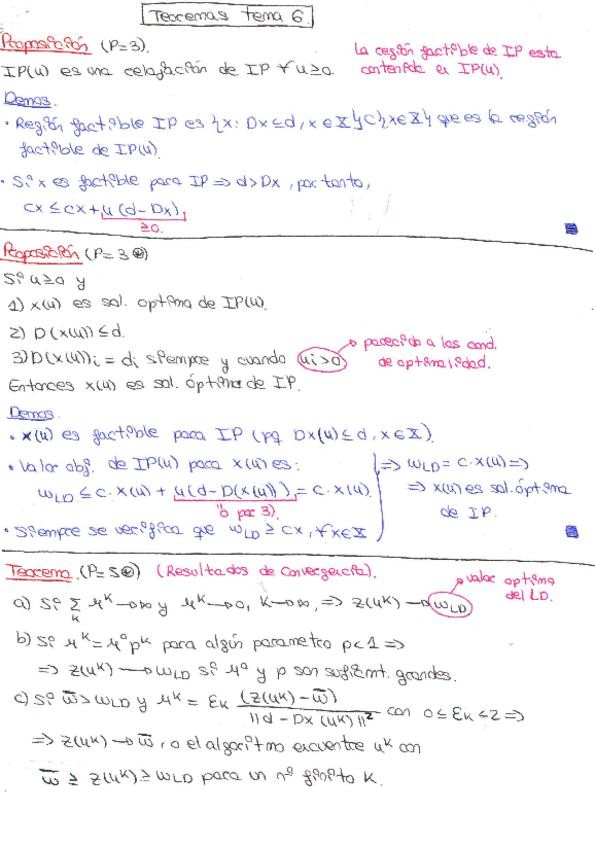 Teoremas tema 6.
Proposición (P=3).
IP(u) es una relajación de IP ∀ u≥0
La región factible de IP esta
contenida en IP(u).
Demos.
• Región factible IP es {x: Dx≤d, x∈X}⊂{x∈X} que es la región
factible de IP(u).
• Si x es factible para IP ⇒ d>Dx, por tanto,
cx ≤ cx + u(d-Dx).
≥0.
Proposición (P=3⊛)
Si u≥0 y
1) x(u) es sol. optima de IP(u).
2) D(x(u)) ≤ d.
3) D(x(u))i = di siempre y cuando ui>0
parecido a las cond.
de optimalidad.
Entonces x(u) es sol. óptima de IP.
Demos.
• x(u) es factible para IP (pq Dx(u)≤d, x∈X).
• Valor obj. de IP(u) para x(u) es:
w_LD ≤ c·x(u) + u(d-D(x(u))) = c·x(u).
0 por 3).
• Siempre se verifica que w_LD ≥ cx, ∀x∈X
⇒ w_LD = c·x(u) ⇒
⇒ x(u) es sol. óptima
de IP.
Teorema. (P=5⊛) (Resultados de Convergencia).
valor optimo
del LD.
a) Si ∑_k μ^k → ∞ y μ^k → 0, k→∞, ⇒ z(u^k) → w_LD
b) Si μ^k = μ^0 ρ^k para algún parametro ρ<1 ⇒
⇒ z(u^k) → w_LD si μ^0 y ρ son suficient. grandes.
c) Si w̄ > w_LD y μ^k = ε_k (z(u^k) - w̄) / ||d - Dx(u^k)||² con 0 ≤ ε_k ≤ 2 ⇒
⇒ z(u^k) → w̄, o el algoritmo encuentre u^k con
w̄ ≥ z(u^k) ≥ w_LD para un nº finito k.